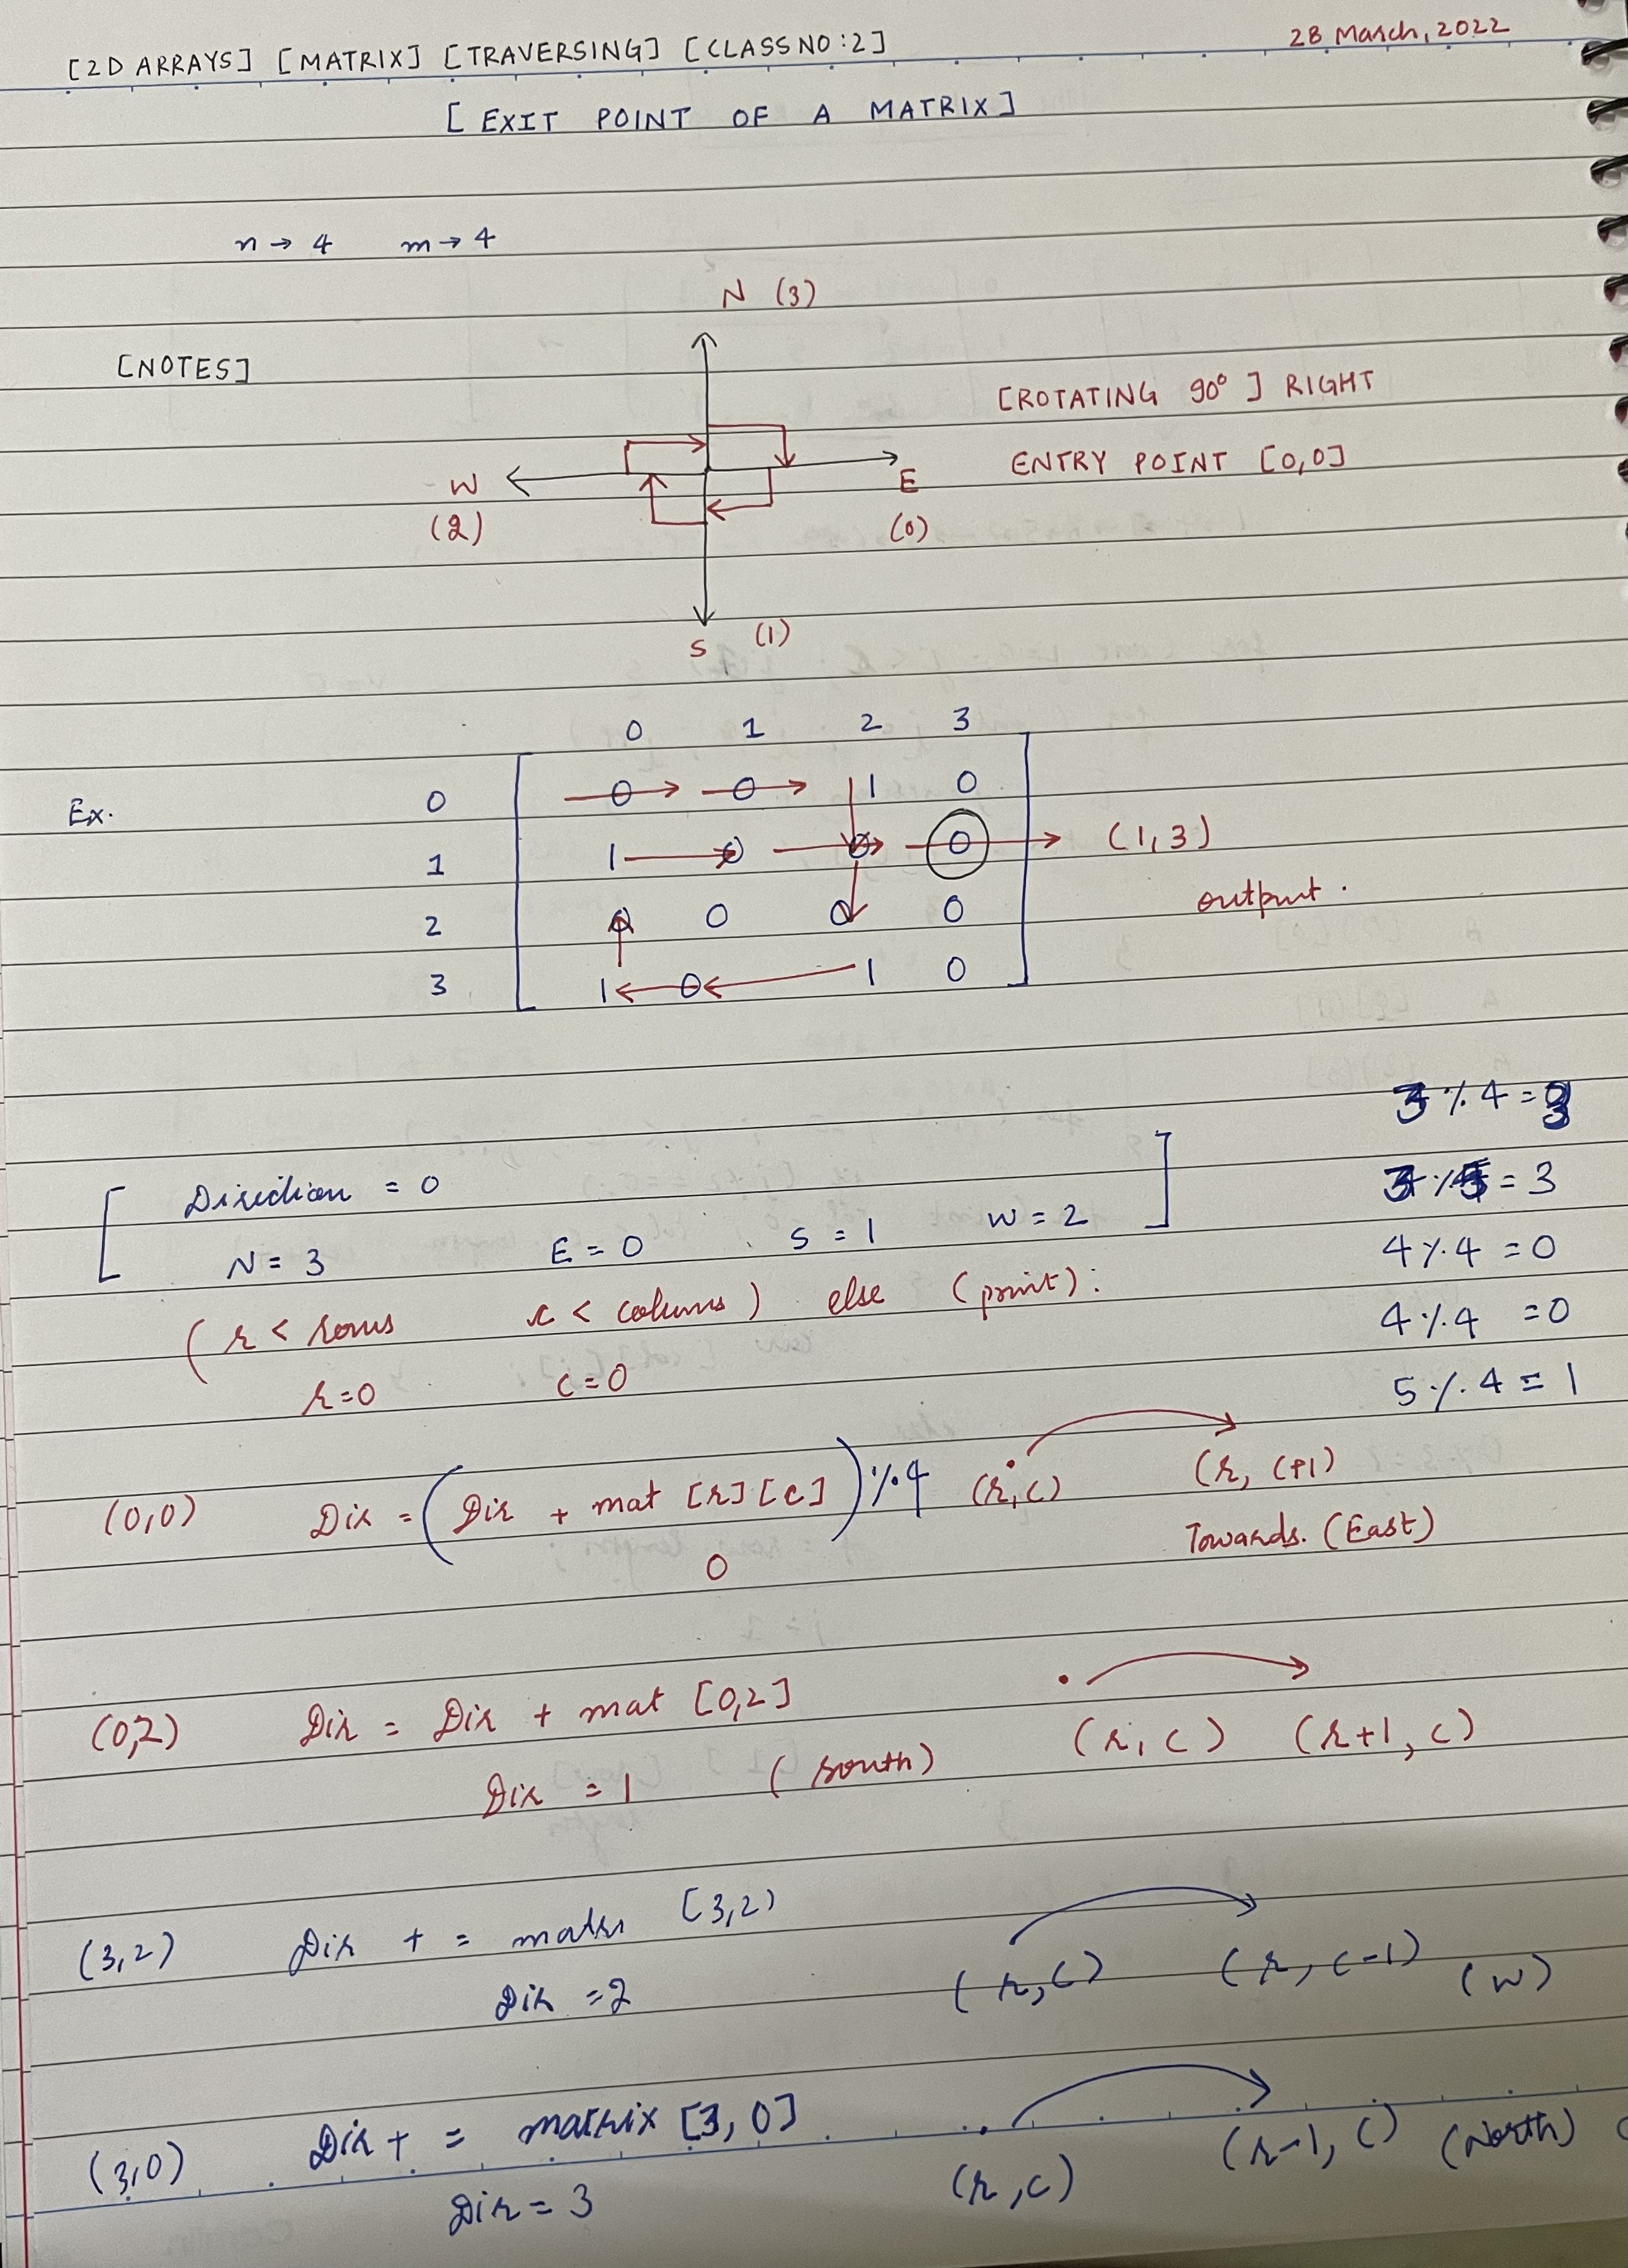 [2D ARRAYS] [MATRIX] [TRAVERSING] [CLASS NO:2] 28 March, 2022
[EXIT POINT OF A MATRIX]
n → 4 m → 4
N (3)
[NOTES]
[ROTATING 90° ] RIGHT
W E ENTRY POINT [0,0]
(2) (0)
S (1)
0 1 2 3
Ex. 0 0 0 1 0
1 1 0 0 0 (1,3)
2 0 0 0 0 output.
3 1 0 1 0
3 % 4 = 3
Direction = 0 = 3
N = 3 E = 0 S = 1 W = 2 4 % 4 = 0
( r < rows c < columns ) else (print): 4 % 4 = 0
r=0 c=0 5 % 4 = 1
(0,0) Dir = (Dir + mat [r][c]) % 4 (r,c) (r, c+1)
0 Towards. (East)
(0,2) Dir = Dir + mat [0,2] (r,c) (r+1, c)
Dir = 1 (south)
(3,2) Dir + = [3,2)
Dir = 2 (r,c) (r, c-1) (W)
(3,0) Dir + = matrix [3,0]
Dir = 3 (r,c) (r-1, c) (North)